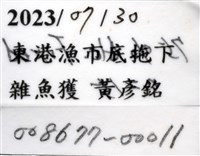 2023/07/30
東港漁市底拖下
雜魚獲 黃彥銘
008677-00011